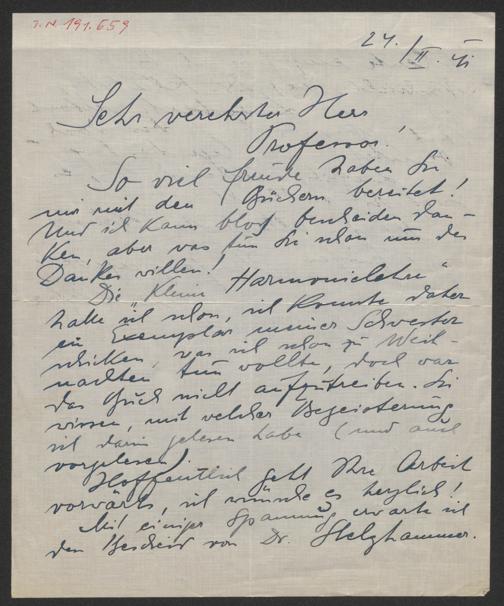 I.N. 191.659
24./II. 41
Sehr verehrter Herr
Professor!
So viel Freude haben Sie
mir mit den Büchern bereitet!
Und ich kann bloß bescheiden dan-
ken, aber was tun Sie schon um des
Dankes willen!
Die „Kleine Harmonielehre"
hatte ich schon, ich konnte daher
ein Exemplar meiner Schwester
schicken, was ich schon zu Weih-
nachten tun wollte, doch war
das Buch nicht aufzutreiben. Sie
wissen, mit welcher Begeisterung
ich darin gelesen habe (und auch
vorgelesen).
Hoffentlich geht Ihre Arbeit
vorwärts, ich wünsche es herzlich!
Mit einiger Spannung erwarte ich
den Bescheid von Dr. Stelzhammer.